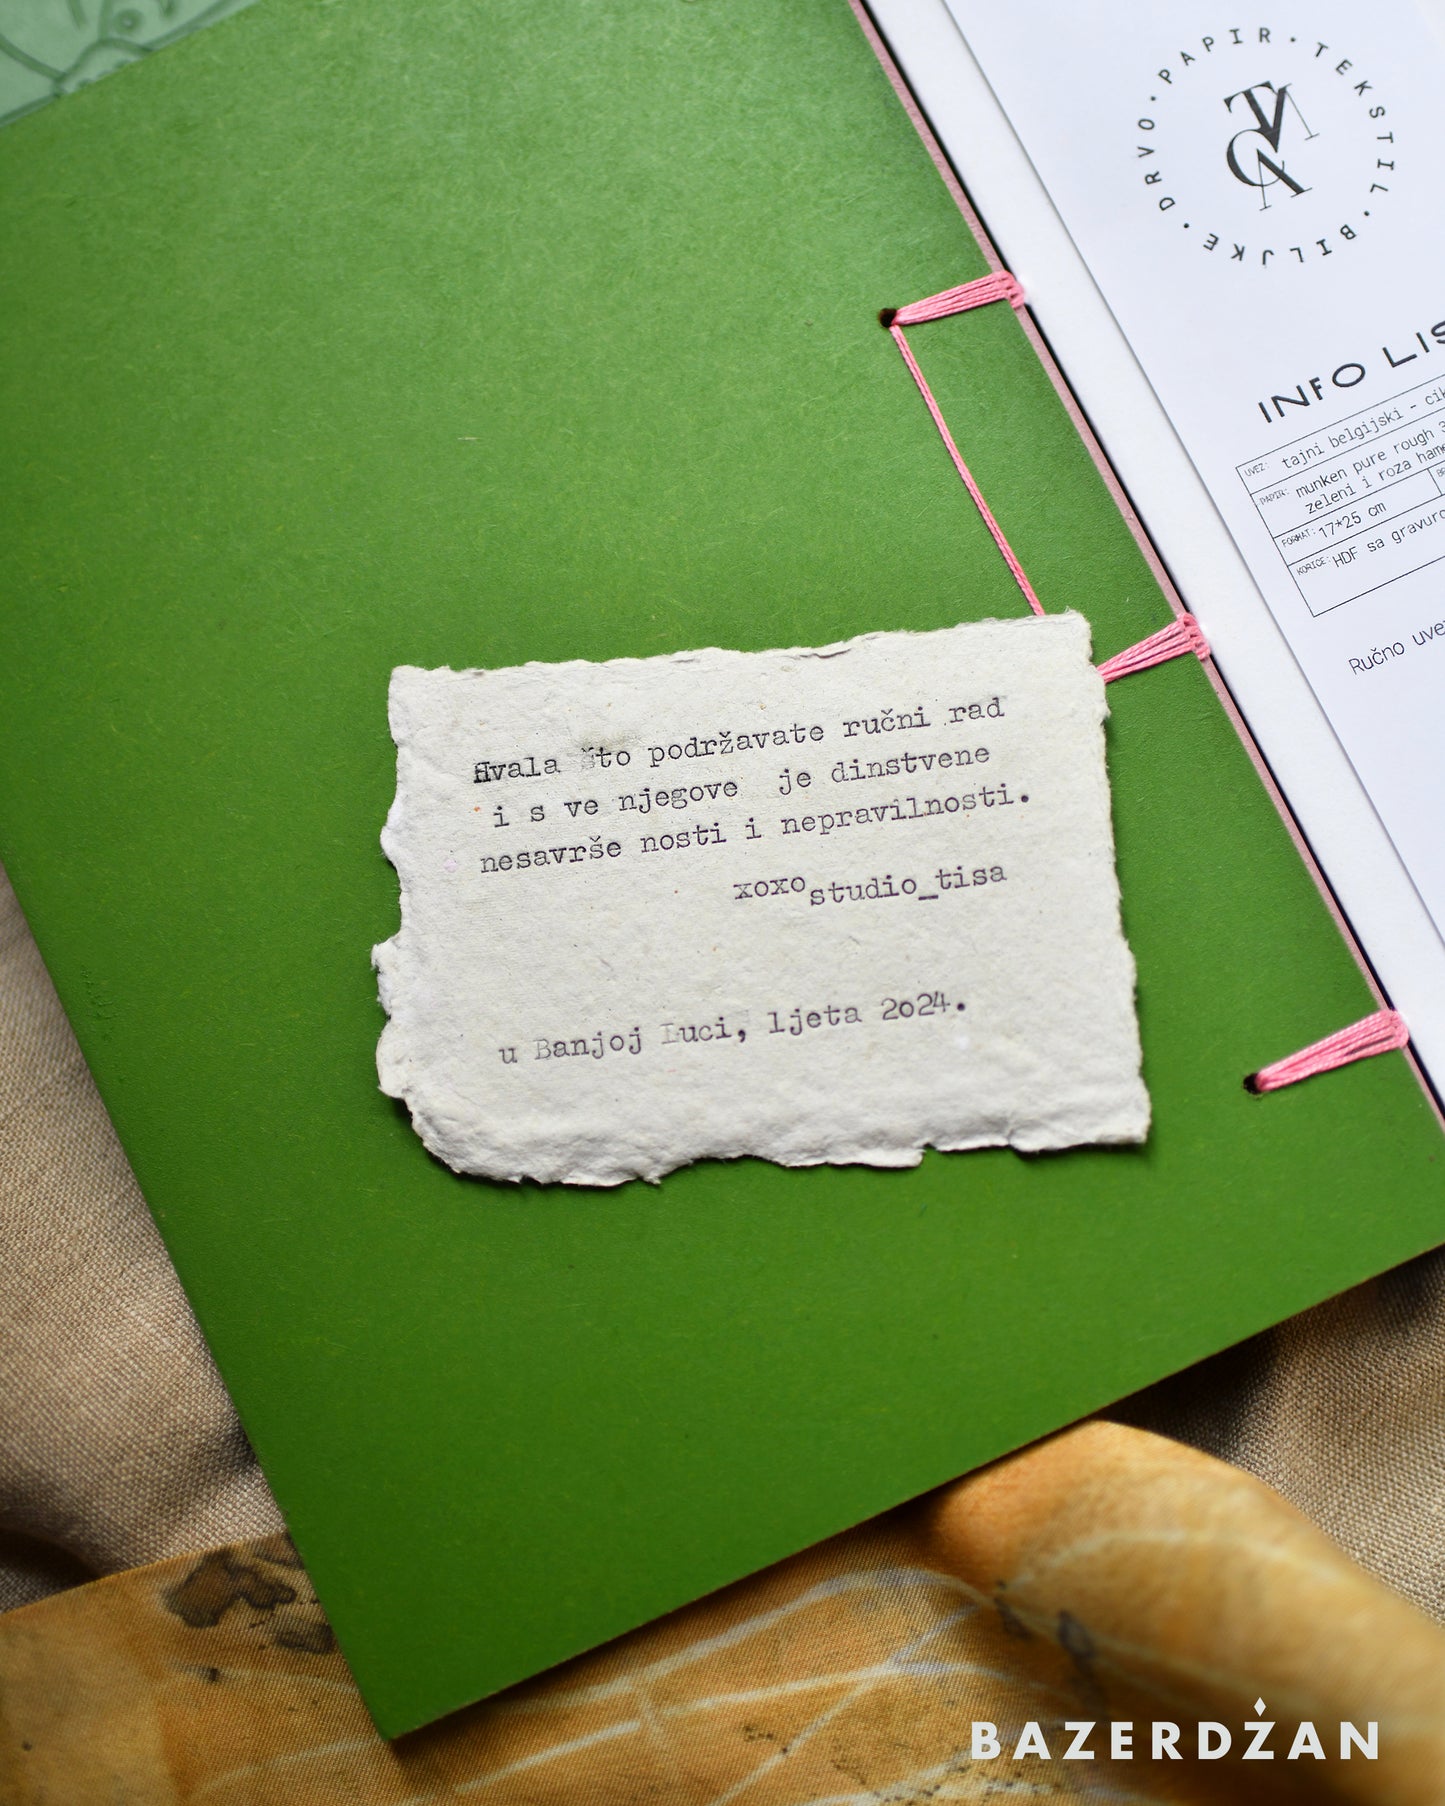 Hvala što podržavate ručni rad
i s ve njegove je dinstvene
nesavrše nosti i nepravilnosti.
xoxo studio_tisa
u Banjoj Luci, ljeta 2o24.
DRVO · PAPIR · TEKSTIL · BILJKE ·
INFO
UVEZ: tajni belgijski -
PAPIR: munken pure rough
zeleni i roza
FORMAT: 17*25 cm
KORICE: HDF sa
Ručno
BAZERDŽAN